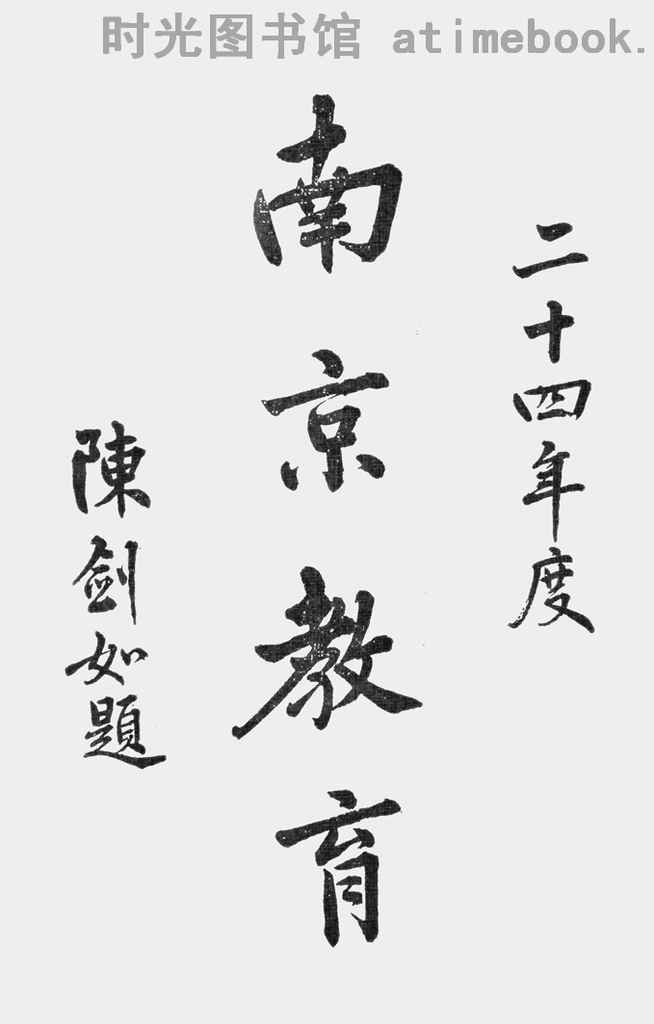 时光图书馆 atimebook.
二十四年度
南京教育
陳劍如題